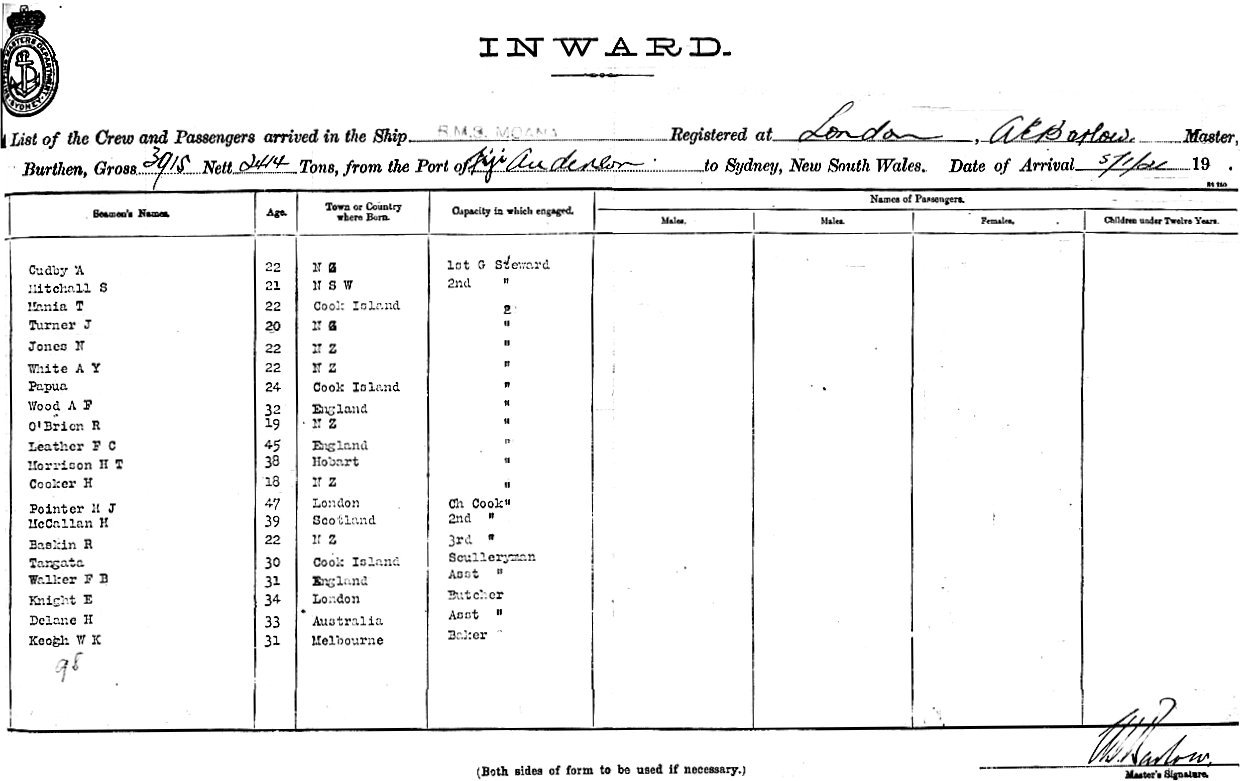 SHIPPING MASTERS DEPARTMENT SYDNEY
INWARD.
List of the Crew and Passengers arrived in the Ship R.M.S. MOANA Registered at London, A E Barlow. Master,
Burthen, Gross 3915 Nett 2414 Tons, from the Port of Fiji to Sydney, New South Wales. Date of Arrival 5/1/21 19 .
Seamen's Names. Age. Town or Country where Born. Capacity in which engaged. Names of Passengers.
Males. Males. Females. Children under Twelve Years.
Cudby A 22 N Z 1st G Steward
Mitchall S 21 N S W 2nd "
Mania T 22 Cook Island 2
Turner J 20 N Z "
Jones N 22 N Z "
White A Y 22 N Z "
Papua 24 Cook Island "
Wood A F 32 England "
O'Brien R 19 N Z "
Leather F C 45 England "
Morrison H T 38 Hobart "
Cooker H 18 N Z "
Pointer M J 47 London Ch Cook"
McCallan H 39 Scotland 2nd "
Baskin R 22 N Z 3rd "
Tangata 30 Cook Island Sculleryman
Walker F B 31 England Asst "
Knight E 34 London Butcher
Delane H 33 Australia Asst "
Keogh W K 31 Melbourne Baker
98
A E Barlow.
(Both sides of form to be used if necessary.)
Master's Signature.